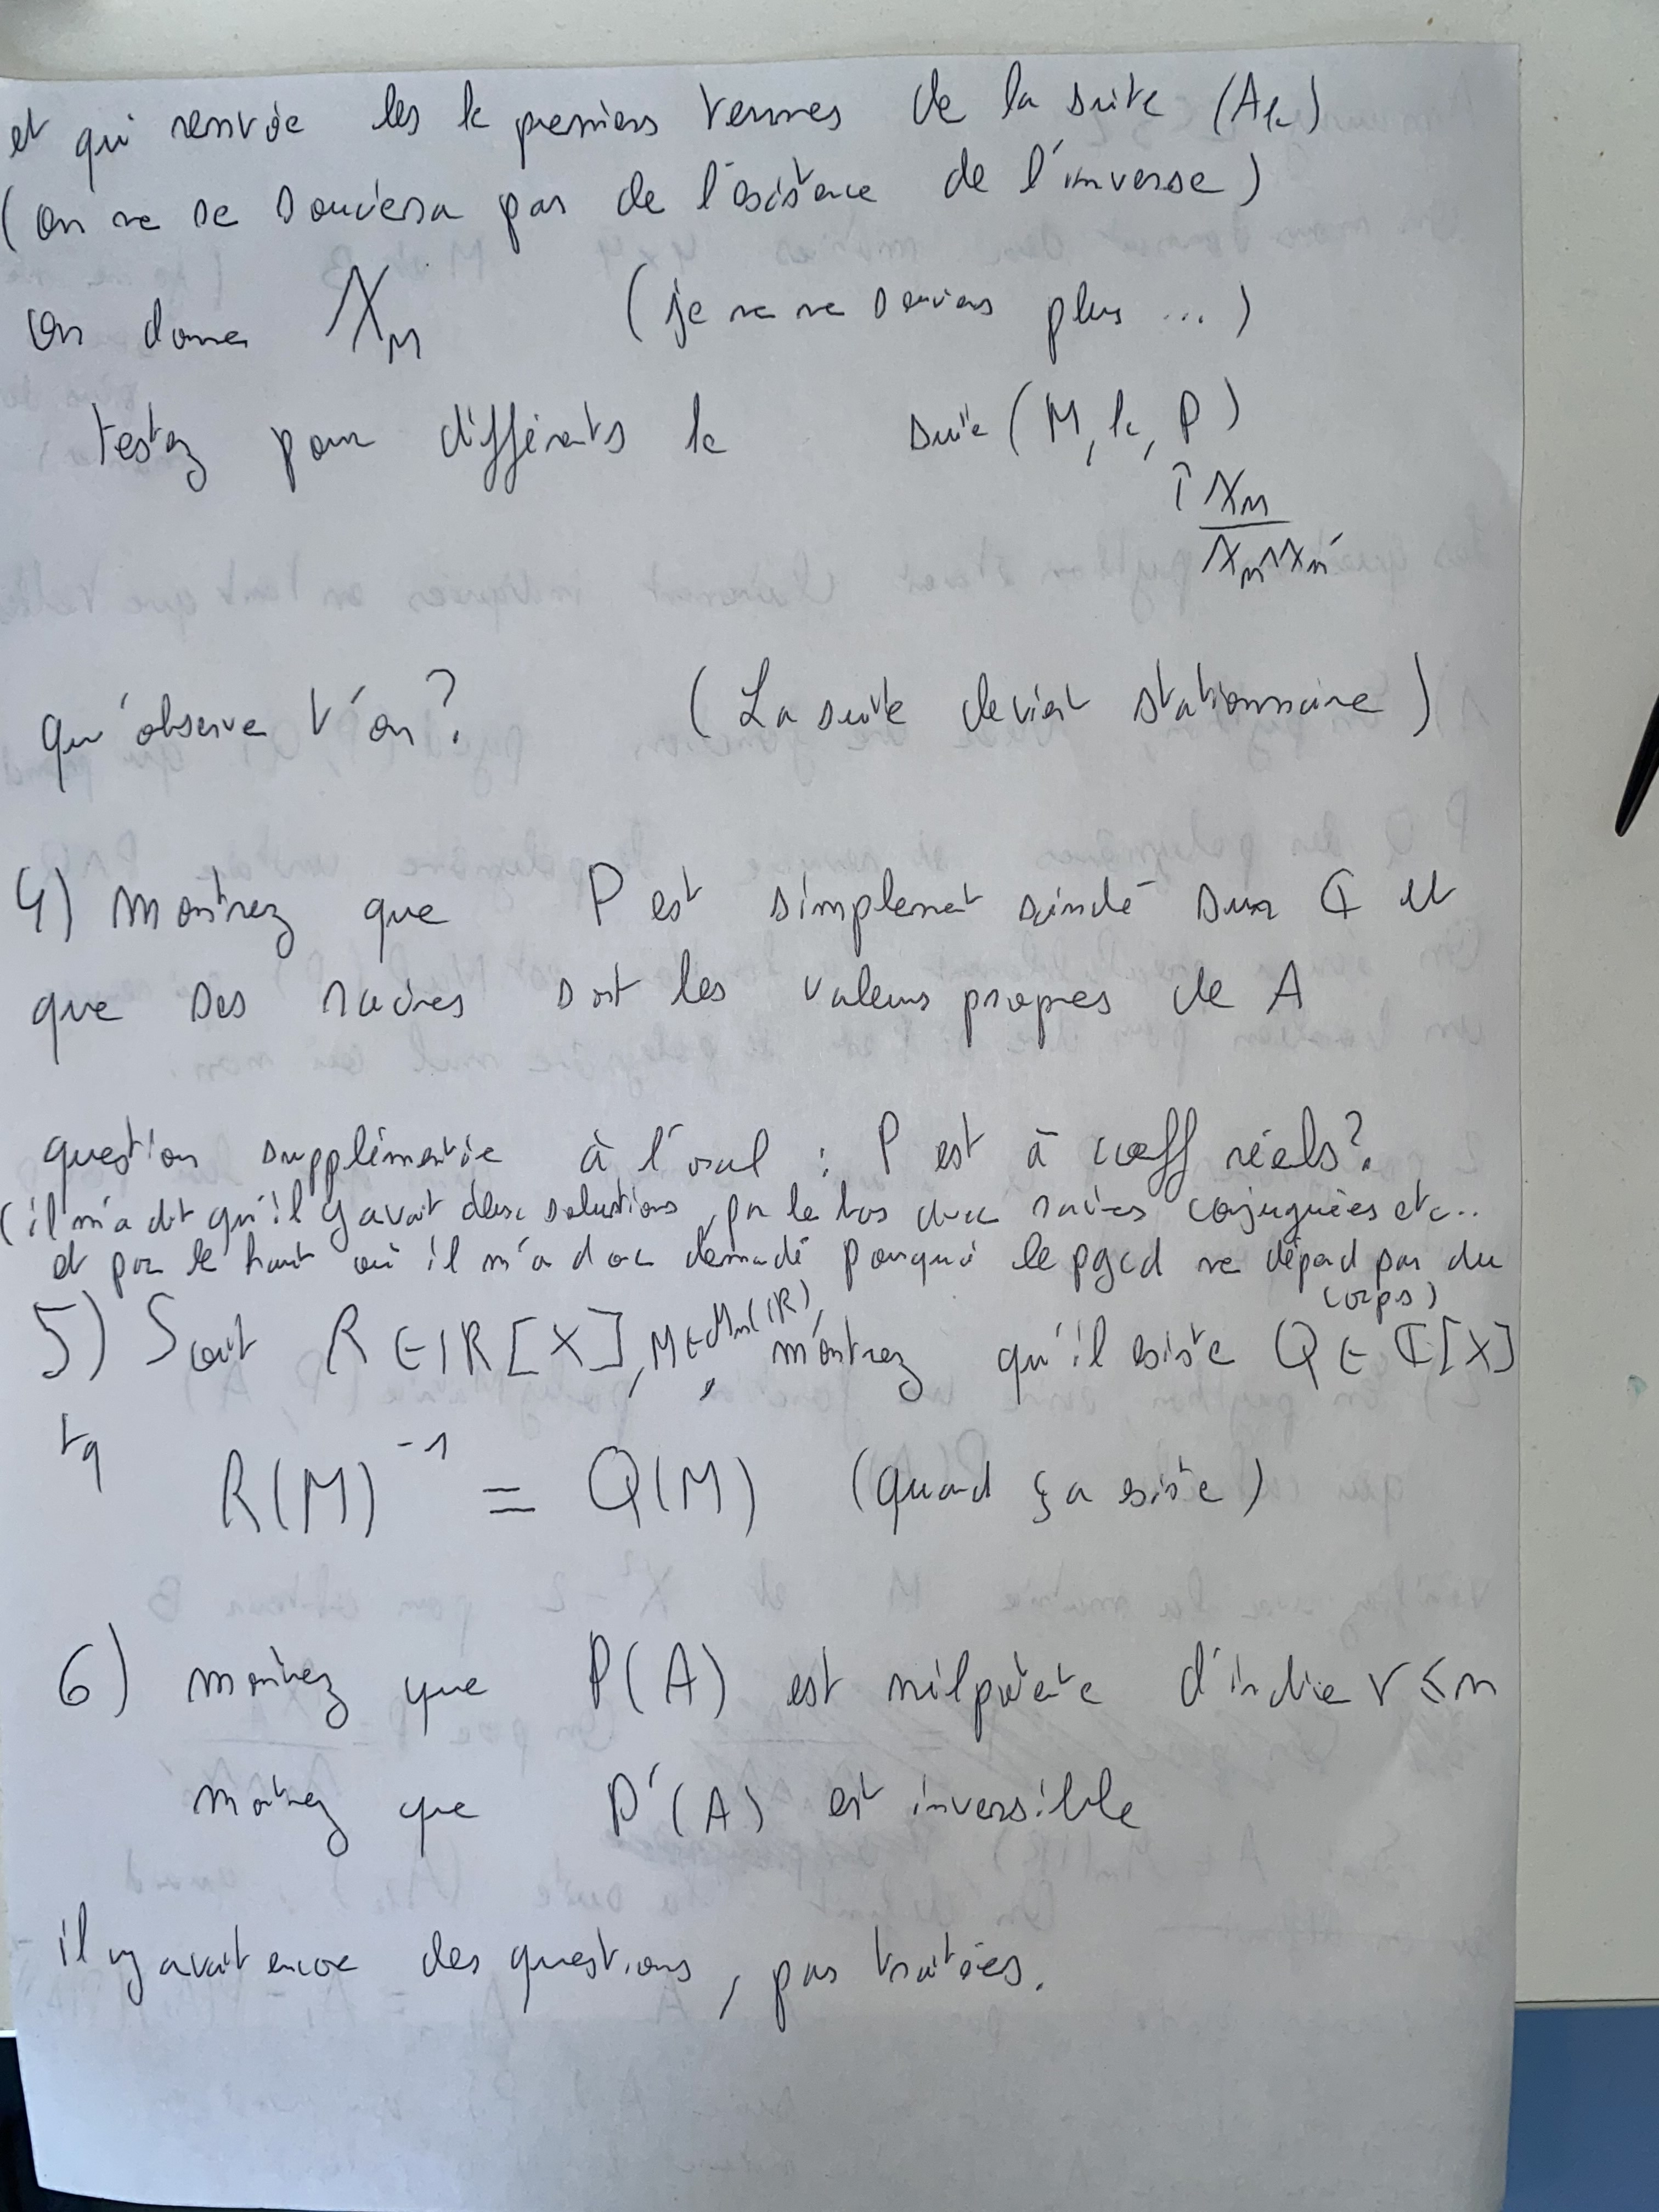 et qui renvoie les k premiers termes de la suite (Ak)
(on ne se souciera pas de l'existence de l'inverse)
on donne χ_M (je ne me souviens plus ...)
testez pour différents k suite (M, k, P)
↑ χ_M / χ_M ∧ χ_M'
qu'observe t'on? (La suite devient stationnaire)
4) montrez que P est simplement scindé sur ℂ et
que ses racines sont les valeurs propres de A
question supplémentaire à l'oral : P est à coeff réels?
(il m'a dit qu'il y avait deux solutions, par le bas avec racines conjuguées etc..
et par le haut où il m'a donc demandé pourquoi le pgcd ne dépend pas du
corps)
5) Soit R ∈ ℝ[X], M ∈ Mn(ℝ), montrez qu'il existe Q ∈ ℂ[X]
tq R(M)⁻¹ = Q(M) (quand ça existe)
6) montrez que P(A) est nilpotente d'indice r ≤ n
montrez que P'(A) est inversible
il y avait encore des questions, pas traitées.